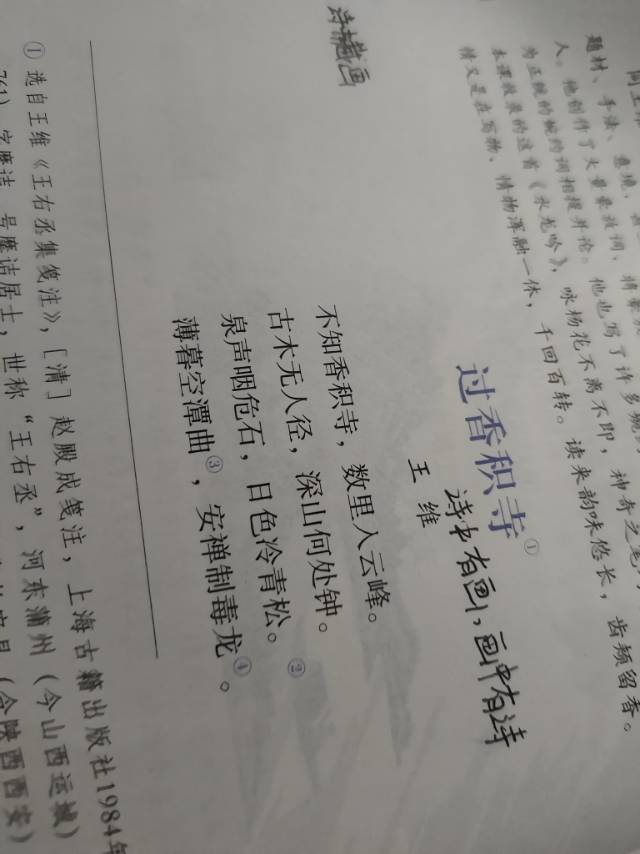 题材、手法、意境，
人。他创作了大量豪放词，
为正统的婉约词相提并论。他也写了许多
本课收录的这首《水龙吟》，咏杨花不离不即，神奇之笔，
情又是在写物，情物浑融一体，千回百转。读来韵味悠长，齿颊留香。
过香积寺①
王维
诗中有画，画中有诗
不知香积寺，数里入云峰。
古木无人径，深山何处钟。
泉声咽危石，日色冷青松。②
薄暮空潭曲③，安禅制毒龙④。
①选自王维《王右丞集笺注》，[清]赵殿成笺注，上海古籍出版社1984年
761），字摩诘，号摩诘居士，世称“王右丞”，河东蒲州（今山西运城）
（今陕西西安）